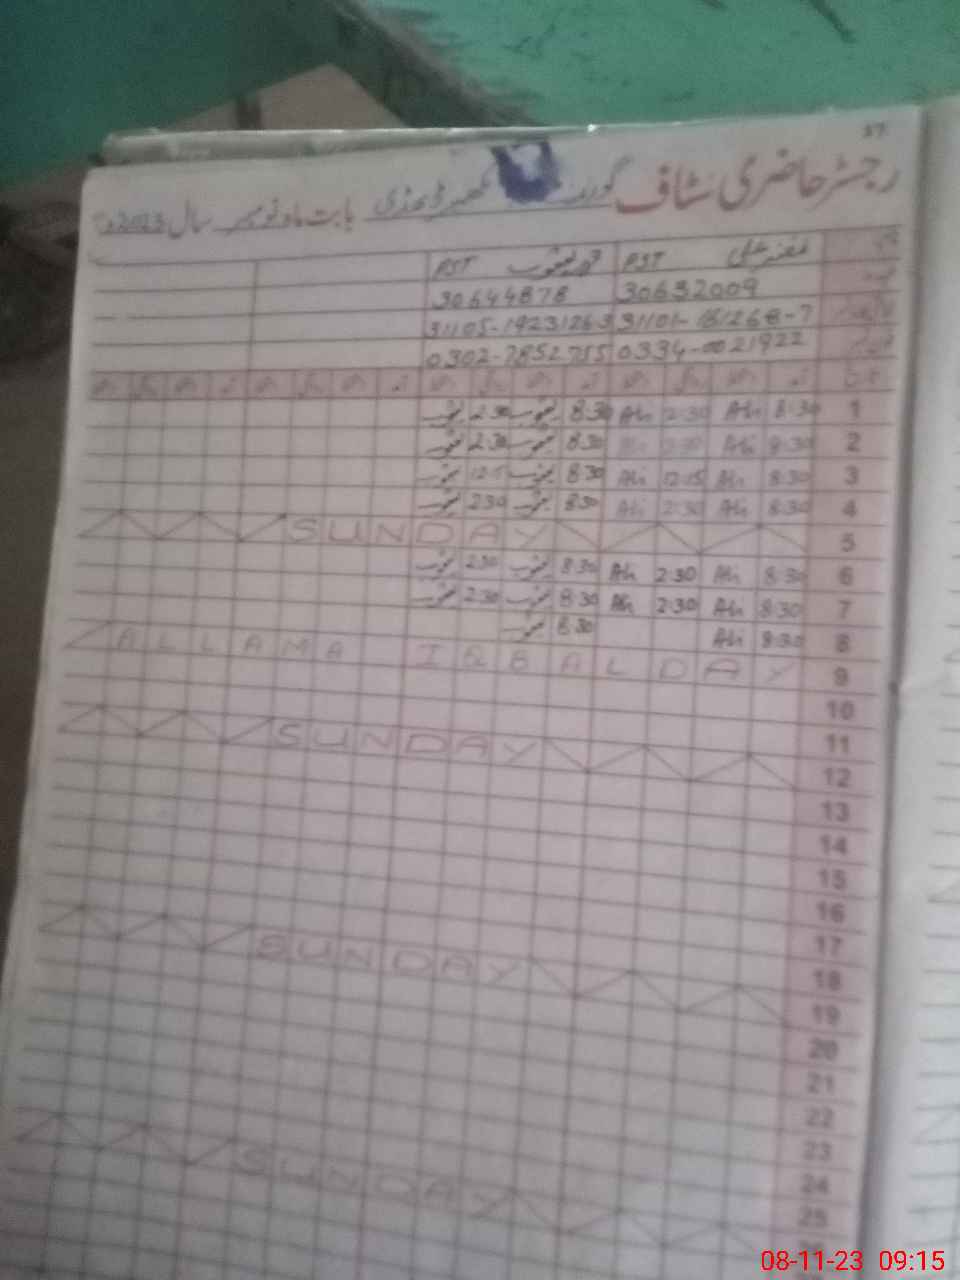 37
رجسٹر حاضری سٹاف بابت ماہ نومبر سال 2023
PST PST
30632009 30644878
31101-161268-7 31105-19231263
0334-0021922 0302-7852755
1 8:30 Ali 2:30 Ali 8:30 یعقوب 2:30 یعقوب
2 8:30 Ali 2:30 Ali 8:30 یعقوب 2:30 یعقوب
3 8:30 Ali 12:15 Ali 8:30 یعقوب 12:15 یعقوب
4 8:30 Ali 2:30 Ali 8:30 یعقوب 2:30 یعقوب
5 SUNDAY
6 8:30 Ali 2:30 Ali 8:30 یعقوب 2:30 یعقوب
7 8:30 Ali 2:30 Ali 8:30 یعقوب 2:30 یعقوب
8 8:30 Ali 8:30 یعقوب
9 ALLAMA IQBAL DAY
10
11
12 SUNDAY
13
14
15
16
17
18
19 SUNDAY
20
21
22
23
24
25
26 SUNDAY
08-11-23 09:15